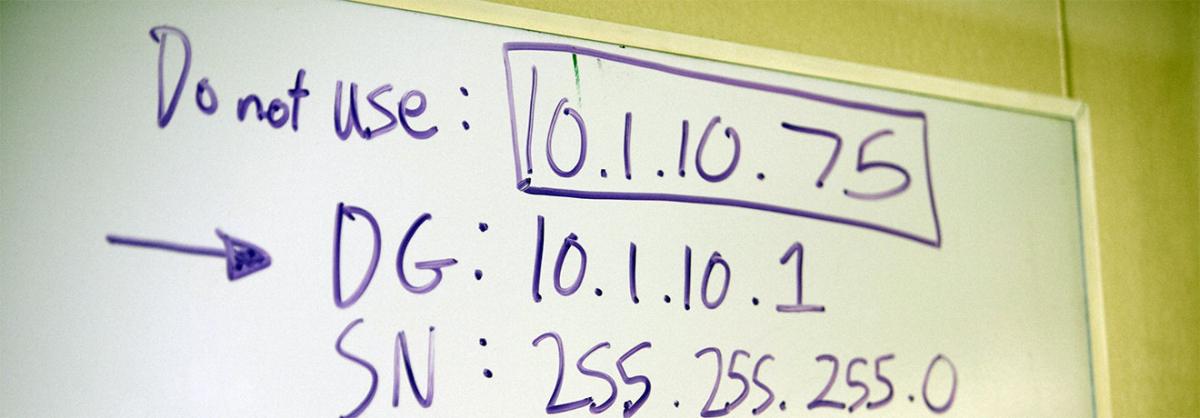 Do not use: 10.1.10.75
DG: 10.1.10.1
SN: 255.255.255.0